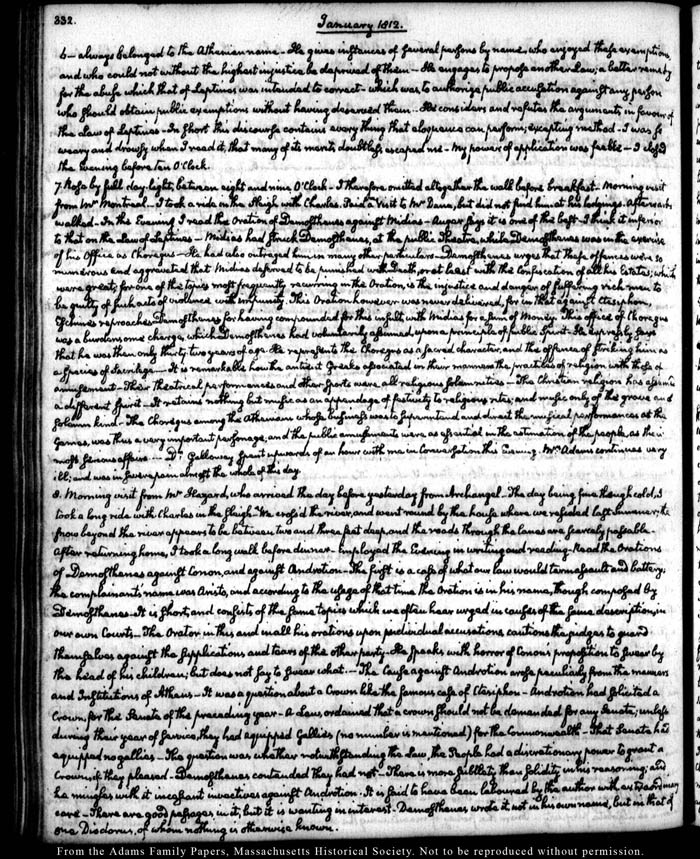 332.
January 1812.
6 — always belonged to the Athenian name — He gives instances of several persons by name, who enjoyed these exemptions,
and who could not without the highest injustice be deprived of them — He engages to propose another Law; a better remedy
for the abuse which that of Leptines was intended to correct — which was to authorize public accusation against any person
who should obtain public exemptions without having deserved them. He considers and refutes the arguments in favour of
the law of Leptines — In short this discourse contains every thing that eloquence can perform; excepting method — I was so
weary and drowsy when I read it, that many of its merits doubtless escaped me — My power of application was feeble — I closed
the Evening before ten O'Clock.
7. Rose by full day-light, between eight and nine O'Clock — I therefore omitted altogether the walk before breakfast — Morning visit
from Mr Montreal. I took a ride in the Sleigh with Charles. Paid a visit to Mr Dana, but did not find him at his lodgings. Afterwards
walked. In the Evening I read the Oration of Demosthenes against Midias — Auger says it is one of the best. I think it inferior
to that on the Law of Leptines — Midias had struck Demosthenes, at the public Theatre, while Demosthenes was in the exercise
of his Office as Choregus — He had also outraged him in many other particulars — Demosthenes urges that these offences were so
numerous and aggravated that Midias deserved to be punished with Death, or at least with the confiscation of all his Estates; which
were great; for one of the topics most frequently recurring in the Oration, is the injustice and danger of suffering rich men to
be guilty of such acts of violence with impunity. This Oration however was never delivered, for in that against Ctesiphon,
Eschines reproaches Demosthenes for having compounded for this insult with Midias for a sum of Money. This office of Choregus
was a burdensome charge, which Demosthenes had voluntarily assumed upon a principle of public Spirit. He expressly says
that he was then only thirty two years of age. He represents the Choregus as a sacred character, and the offence of striking him as
a species of Sacrilege — It is remarkable how the antient Greeks associated in their manners the practices of religion with those of
amusement — Their theatrical performances and other sports were all religious solemnities — The Christian religion has assumed
a different spirit — It retains nothing but music as an appendage of festivity to religious rites; and music only of the grave and
solemn kind — The Choregus among the Athenians whose business was to superintend and direct the musical performances at the
Games, was thus a very important personage, and the public amusements were as essential in the estimation of the people, as their
most serious affairs — Dr Galloway spent upwards of an hour with me in conversation this Evening. Mrs Adams continues very
ill; and was in severe pain almost the whole of this day.
8. Morning visit from Mr Hazard, who arrived the day before yesterday from Archangel. The day being fine though cold, I
took a long ride with Charles in the Sleigh. We cross'd the river, and went round by the house where we resided last Summer; the
snow beyond the river appears to be between two and three feet deep, and the roads through the lanes are scarcely passable.
After returning home, I took a long walk before dinner. Employed the Evening in writing and reading. Read the Orations
of Demosthenes against Conon, and against Androtion. The first is a case of what our law would term assault and battery,
the complainant's name was Aristo, and according to the usage of that time the Oration is in his name, though composed by
Demosthenes. It is short, and consists of the same topics which we often hear urged in causes of the same description, in
our own Courts. The Orator in this and in all his orations upon individual accusations, cautions the judges to guard
themselves against the supplications and tears of the other party. He speaks with horror of Conon's proposition to swear by
the head of his children; but does not say to swear what. The Cause against Androtion arose peculiarly from the manners
and Institutions of Athens — It was a question about a Crown like the famous case of Ctesiphon — Androtion had solicited a
Crown, for the Senate of the preceding year — A Law, ordained that a crown should not be demanded for any Senate; unless
during their year of service, they had equipped Gallies (no number is mentioned) for the Commonwealth — That Senate had
equipped no gallies — The question was whether notwithstanding the Law, the People had a discretionary power to grant a
Crown, if they pleased — Demosthenes contended they had not — There is more subtlety than solidity in his reasoning, and
he mingles with it incessant invectives against Androtion. It is said to have been laboured by the author with extraordinary
care — There are good passages in it, but it is wanting in interest. Demosthenes wrote it not in his own name, but in that of
one Diodorus, of whom nothing is otherwise known.
From the Adams Family Papers, Massachusetts Historical Society. Not to be reproduced without permission.